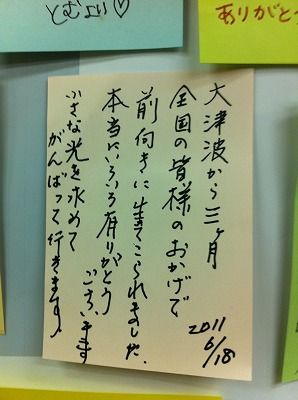 とむより♡
ありがとう
大津波から三ヶ月
全国の皆様のおかげで
前向きに生てこられました.
本当にいろいろ有りがとう
ございます
小さな光を求めて
がんばって行きます。
2011
6/18